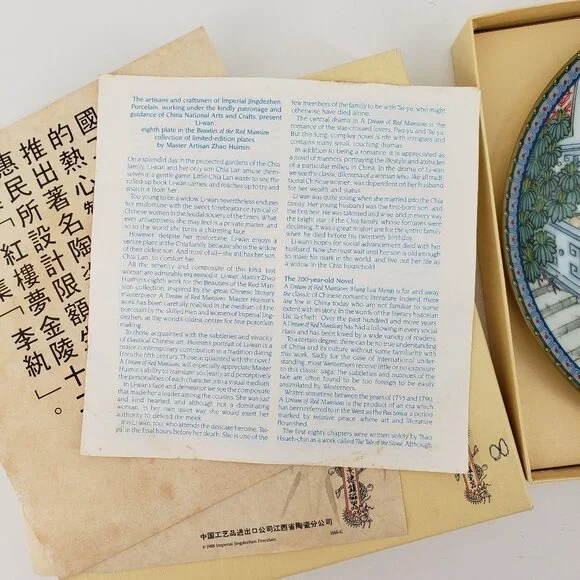 The artisans and craftsmen of Imperial Jingdezhen
Porcelain, working under the kindly patronage and
guidance of China National Arts and Crafts, present
Li-wan,
eighth plate in the Beauties of the Red Mansion
collection of limited-edition plates
by Master Artisan Zhao Huimin.
On a splendid day in the protected gardens of the Chia
family, Li-wan and her only son Chia Lan amuse them-
selves in a gentle game. Little Chia Lan wants to see the
rolled-up book Li-wan carries, and reaches up to try and
snatch it from her.
Too young to be a widow, Li-wan nevertheless endures
her misfortune with the sweet forebearance typical of
Chinese women in the feudal society of the times. What-
ever unhappiness she may feel is a private matter, and
so to the world she turns a charming face.
However, despite her misfortune, Li-wan enjoys a
secure place in the Chia family, because she is the widow
of their oldest son. And most of all—she still has her son
Chia Lan, to comfort her.
All the serenity and composure of this kind, fast
woman are aptly expressed in Li-wan, Master Zhao
Huimin's eighth work for the Beauties of the Red Man-
sion collection, inspired by the great Chinese literary
masterpiece A Dream of Red Mansions. Master Huimin's
work has been carefully realised in the medium of fine
porcelain by the skilled men and women of Imperial Jing-
dezhen, at the world's oldest centre for fine porcelain
making.
To those acquainted with the subtleties and vivacity
of classical Chinese art, Huimin's portrait of Li-wan is a
major contemporary contribution in a tradition dating
from the 8th century. Those acquainted with the novel
A Dream of Red Mansions, will especially appreciate Master
Huimin's ability to translate so clearly and perceptively
the personalities of each character into a visual medium.
In Li-wan's face and demeanour we see the composure
that made her a leader among the cousins. She was just
and kind hearted, and although not a dominating
woman, in her own quiet way she would exert her
authority to defend the meek.
It is Li-wan, too, who attends the delicate heroine, Tai-
yu, in the final hours before her death. She is one of the
few members of the family to be with Tai-yu, who might
otherwise have died alone.
The central drama in A Dream of Red Mansions is the
romance of the star-crossed lovers, Pao-yu and Tai-yu.
But this long, complex novel is rife with intrigues and
contains many small, touching dramas.
In addition to being a romance, it is appreciated as
a novel of manners, portraying the lifestyle and atrocities
of a particular milieu in China. In the drama of Li-wan
we see the classic dilemma of a woman who, like all tradi-
tional Chinese women, was dependent on her husband
for her wealth and status.
Li-wan was quite young when she married into the Chia
family. Her young husband was the first-born son, and
the first heir. He was talented and wise, and in every way
the bright star of the Chia family, whose fortunes were
declining. It was a great misfortune for the entire family
when he died before his twentieth birthday.
Li-wan's hopes for social advancement died with her
husband. Now she must wait until her son is old enough
to make his mark in the world, and live out her life as
a widow in the Chia household.
The 200-year-old Novel
A Dream of Red Mansions (Hung Lou Meng) is far and away
the classic of Chinese romantic literature. Indeed, there
are few in China today who are not familiar to some
extent with its story. In the words of the literary historian
Liu Ts'un-yan, Over the past hundred and more years
A Dream of Red Mansions has had a following in every social
class and has been loved by a wide variety of readers.
To a certain degree, there can be no true understanding
of China and its culture without some familiarity with
this work. Sadly, for the case of international under-
standing, most Westerners receive little or no exposure
to this classic saga. The subtleties and nuances of the
tale are often found to be too foreign to be easily
assimilated by Westerners.
Written sometime between the years of 1755 and 1790,
A Dream of Red Mansions is the product of an era which
has been referred to in the West as the Pax Sinica, a period
marked by relative peace, where art and literature
flourished.
The first eighty chapters were written solely by Tsao
Hsueh-chin as a work called The Tale of the Stone. Although
國
的熱心
推出著名陶瓷
惠民所設計限額
「紅樓夢金陵十二
集」李紈」。
中国工艺品进出口公司江西省陶瓷分公司
© 1988 Imperial Jingdezhen Porcelain
1088-C
8